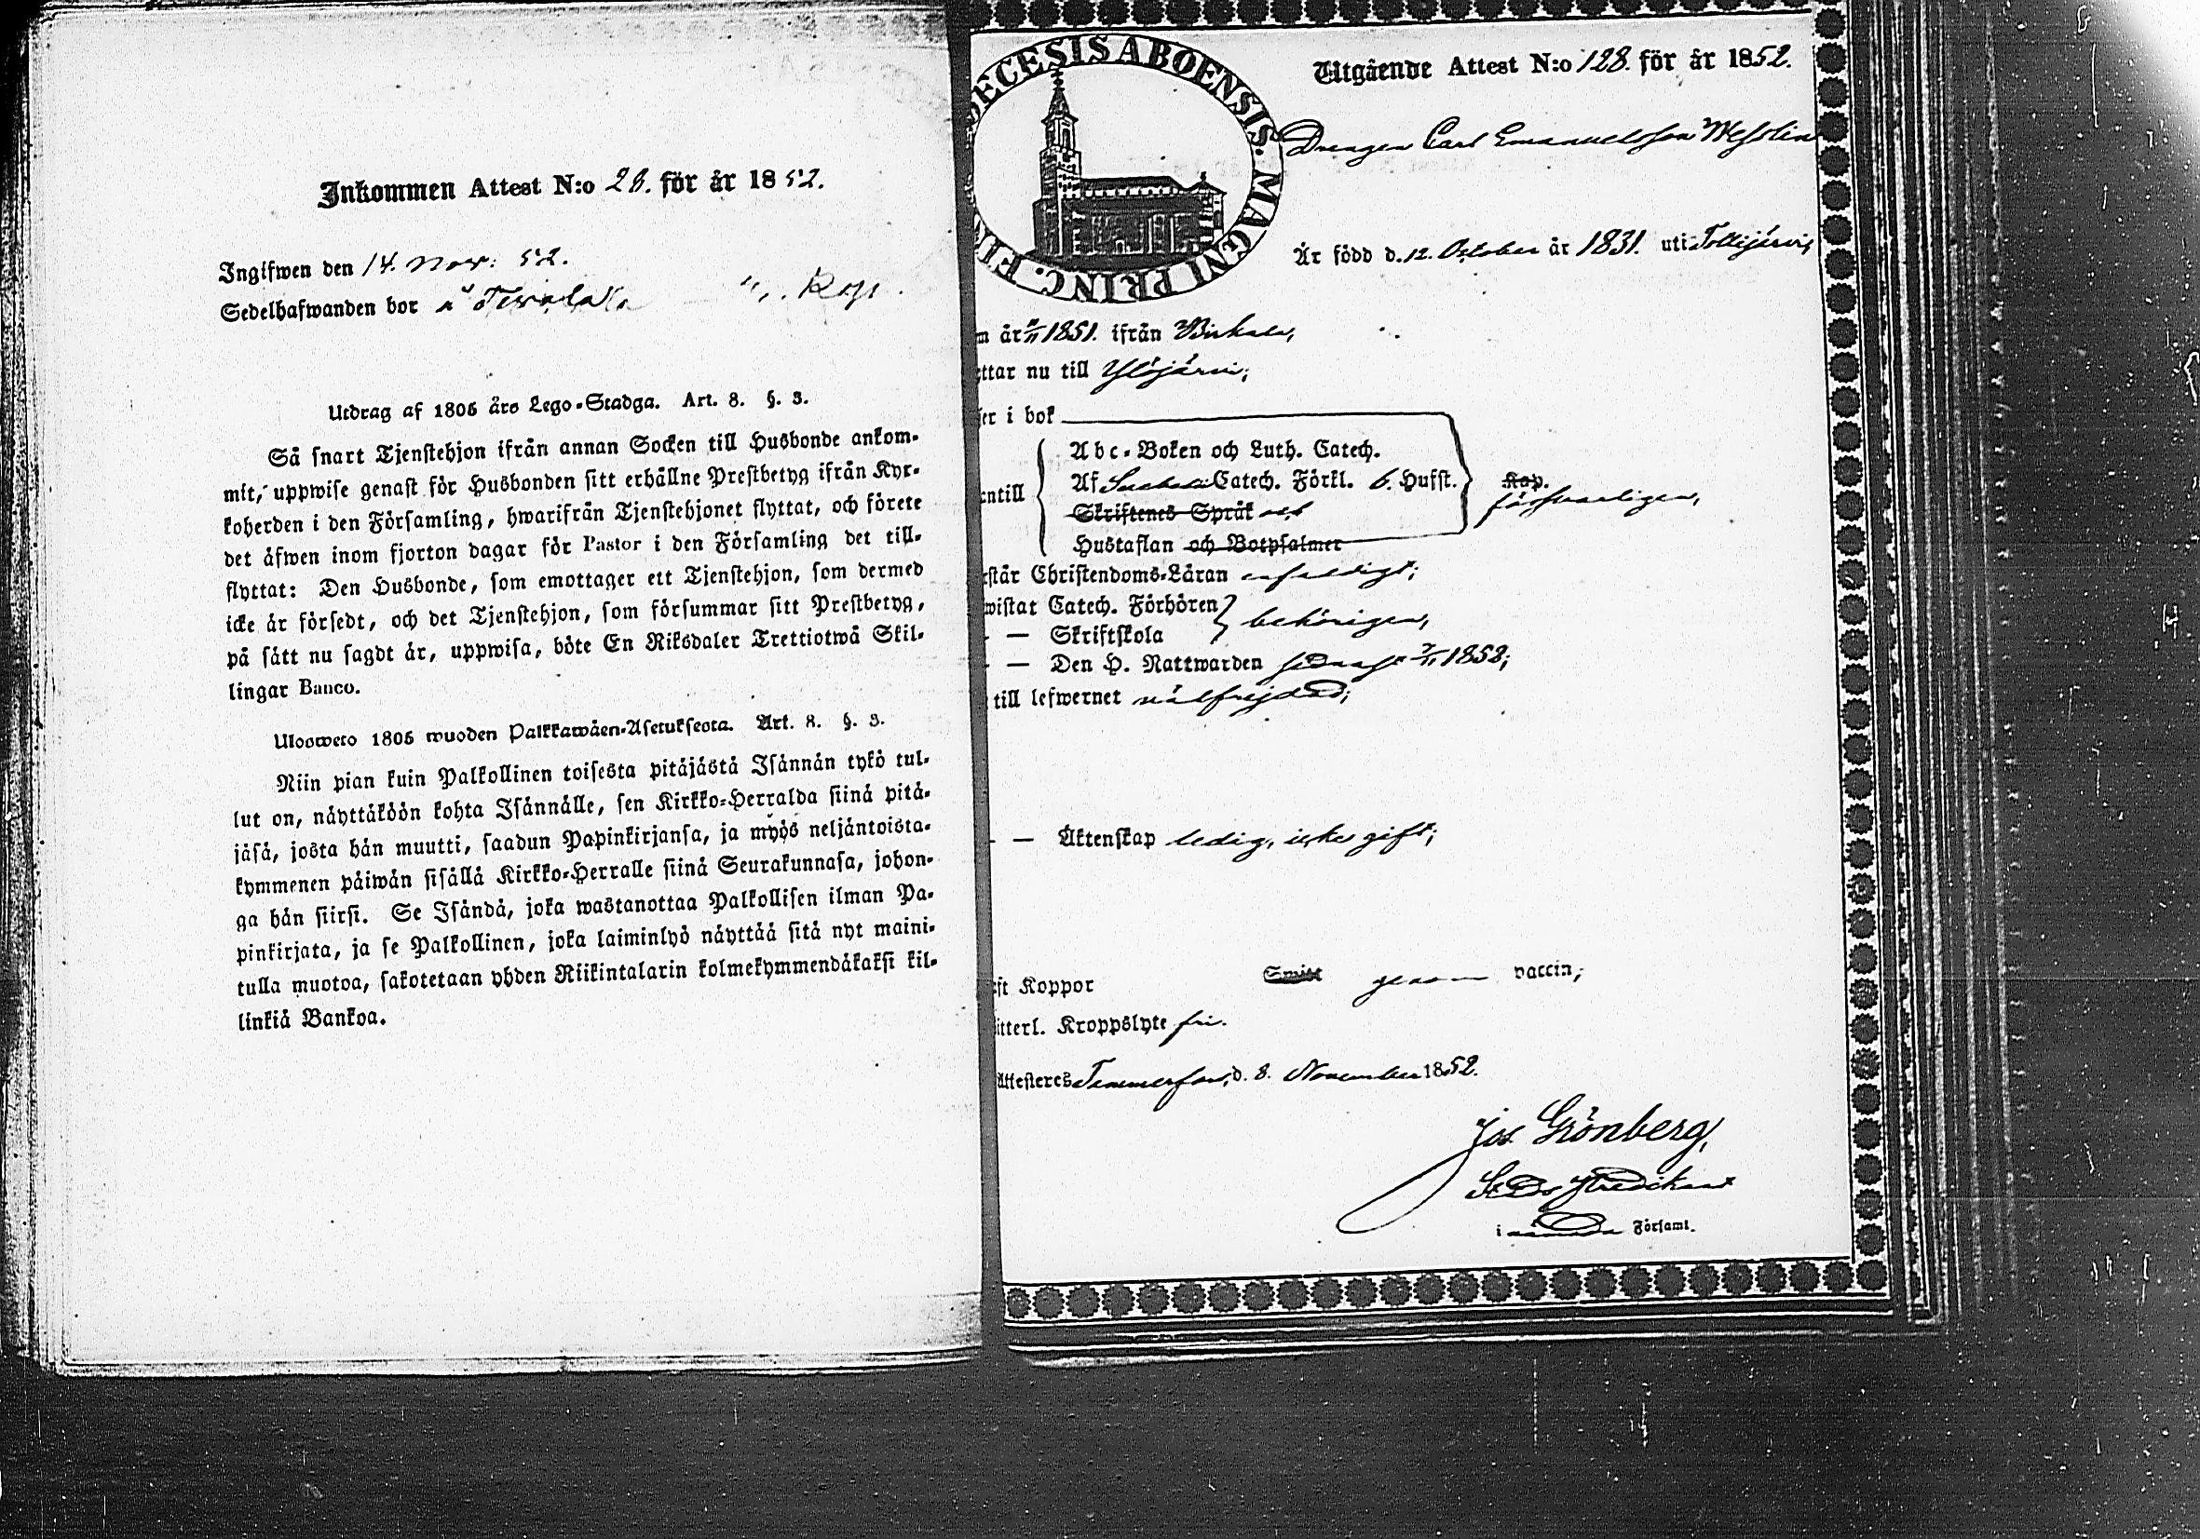 Inkommen Attest N:o 28. för år 1852.
Ingifwen den 14. Nov: 52.
Sedelhafwanden bor å
Utdrag af 1805 års Lego-Stadga. Art. 8. §. 3.
Så snart Tjenstehjon ifrån annan Socken till Husbonde ankom-
mit, uppwise genast för Husbonden sitt erhållne Prestbetyg ifrån Kyr-
koherden i den Församling, hwarifrån Tjenstehjonet flyttat, och förete
det äfwen inom fjorton dagar för Pastor i den Församling det till-
flyttat: Den Husbonde, som emottager ett Tjenstehjon, som dermed
icke är försedt, och det Tjenstehjon, som försummar sitt Prestbetyg,
på sätt nu sagdt är, uppwisa, böte En Riksdaler Trettiotwå Skil-
lingar Banco.
Ulosweto 1805 wuoden Palkkawäen-Asetuksesta. Art. 8. §. 3.
Niin pian kuin Palkollinen toisesta pitäjästä Isännän tykö tul-
lut on, näyttäköön kohta Isännälle, sen Kirkko-Herralda siinä pitä-
jäsä, josta hän muutti, saadun Papinkirjansa, ja myös neljäntoista-
kymmenen päiwän sisällä Kirkko-Herralle siinä Seurakunnasa, johon-
ga hän siirsi. Se Isändä, joka wastanottaa Palkollisen ilman Pa-
pinkirjata, ja se Palkollinen, joka laiminlyö näyttää sitä nyt maini-
tulla muotoa, sakotetaan yhden Riikintalarin kolmekymmendäkaksi kil-
linkiä Bankoa.
DECESIS ABOENSIS. MAGNI PRINC. FIN
Utgående Attest N:o 128. för år 1852.
Drengen Carl Emanuelsson Wesslin
Är född d. 12. October år 1831. uti Tottijärvi,
m år 1851. ifrån Birkala,
ttar nu till Ylöjärvi;
ser i bok
Abc-Boken och Luth. Catech.
Af Catech. Förkl. 6. Hufst. Kap.
entill försvarligen,
Skriftenes Språk och
Hustaflan och Botpsalmer
rstår Christendoms-Läran enfaldigt;
wistat Catech. Förhören
behörigen,
- — Skriftskola
- — Den H. Nattwarden sednast 7/11 1852;
till lefwernet välfrejdad;
- — Äktenskap ledig, icke gift;
ft Koppor Smitt genom vaccin;
itterl. Kroppslyte fri.
Attesteres Tammerfors, d. 8. November 1852.
Jos Grönberg,
Predikant
i nämnda Församl.